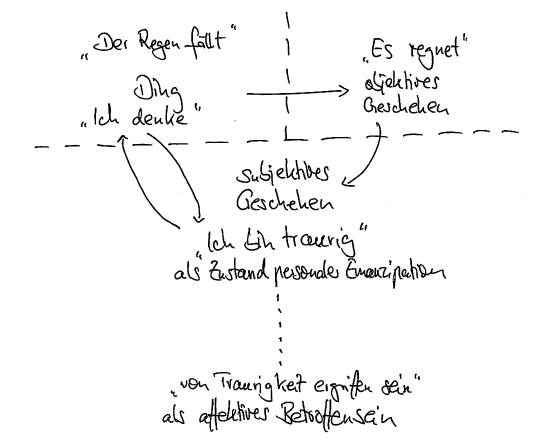 „Der Regen fällt“
Ding
„Ich denke“
„Es regnet“
objektives
Geschehen
subjektives
Geschehen
„Ich bin traurig“
als Zustand personaler Emanzipation
„von Traurigkeit ergriffen sein“
als affektives Betroffensein